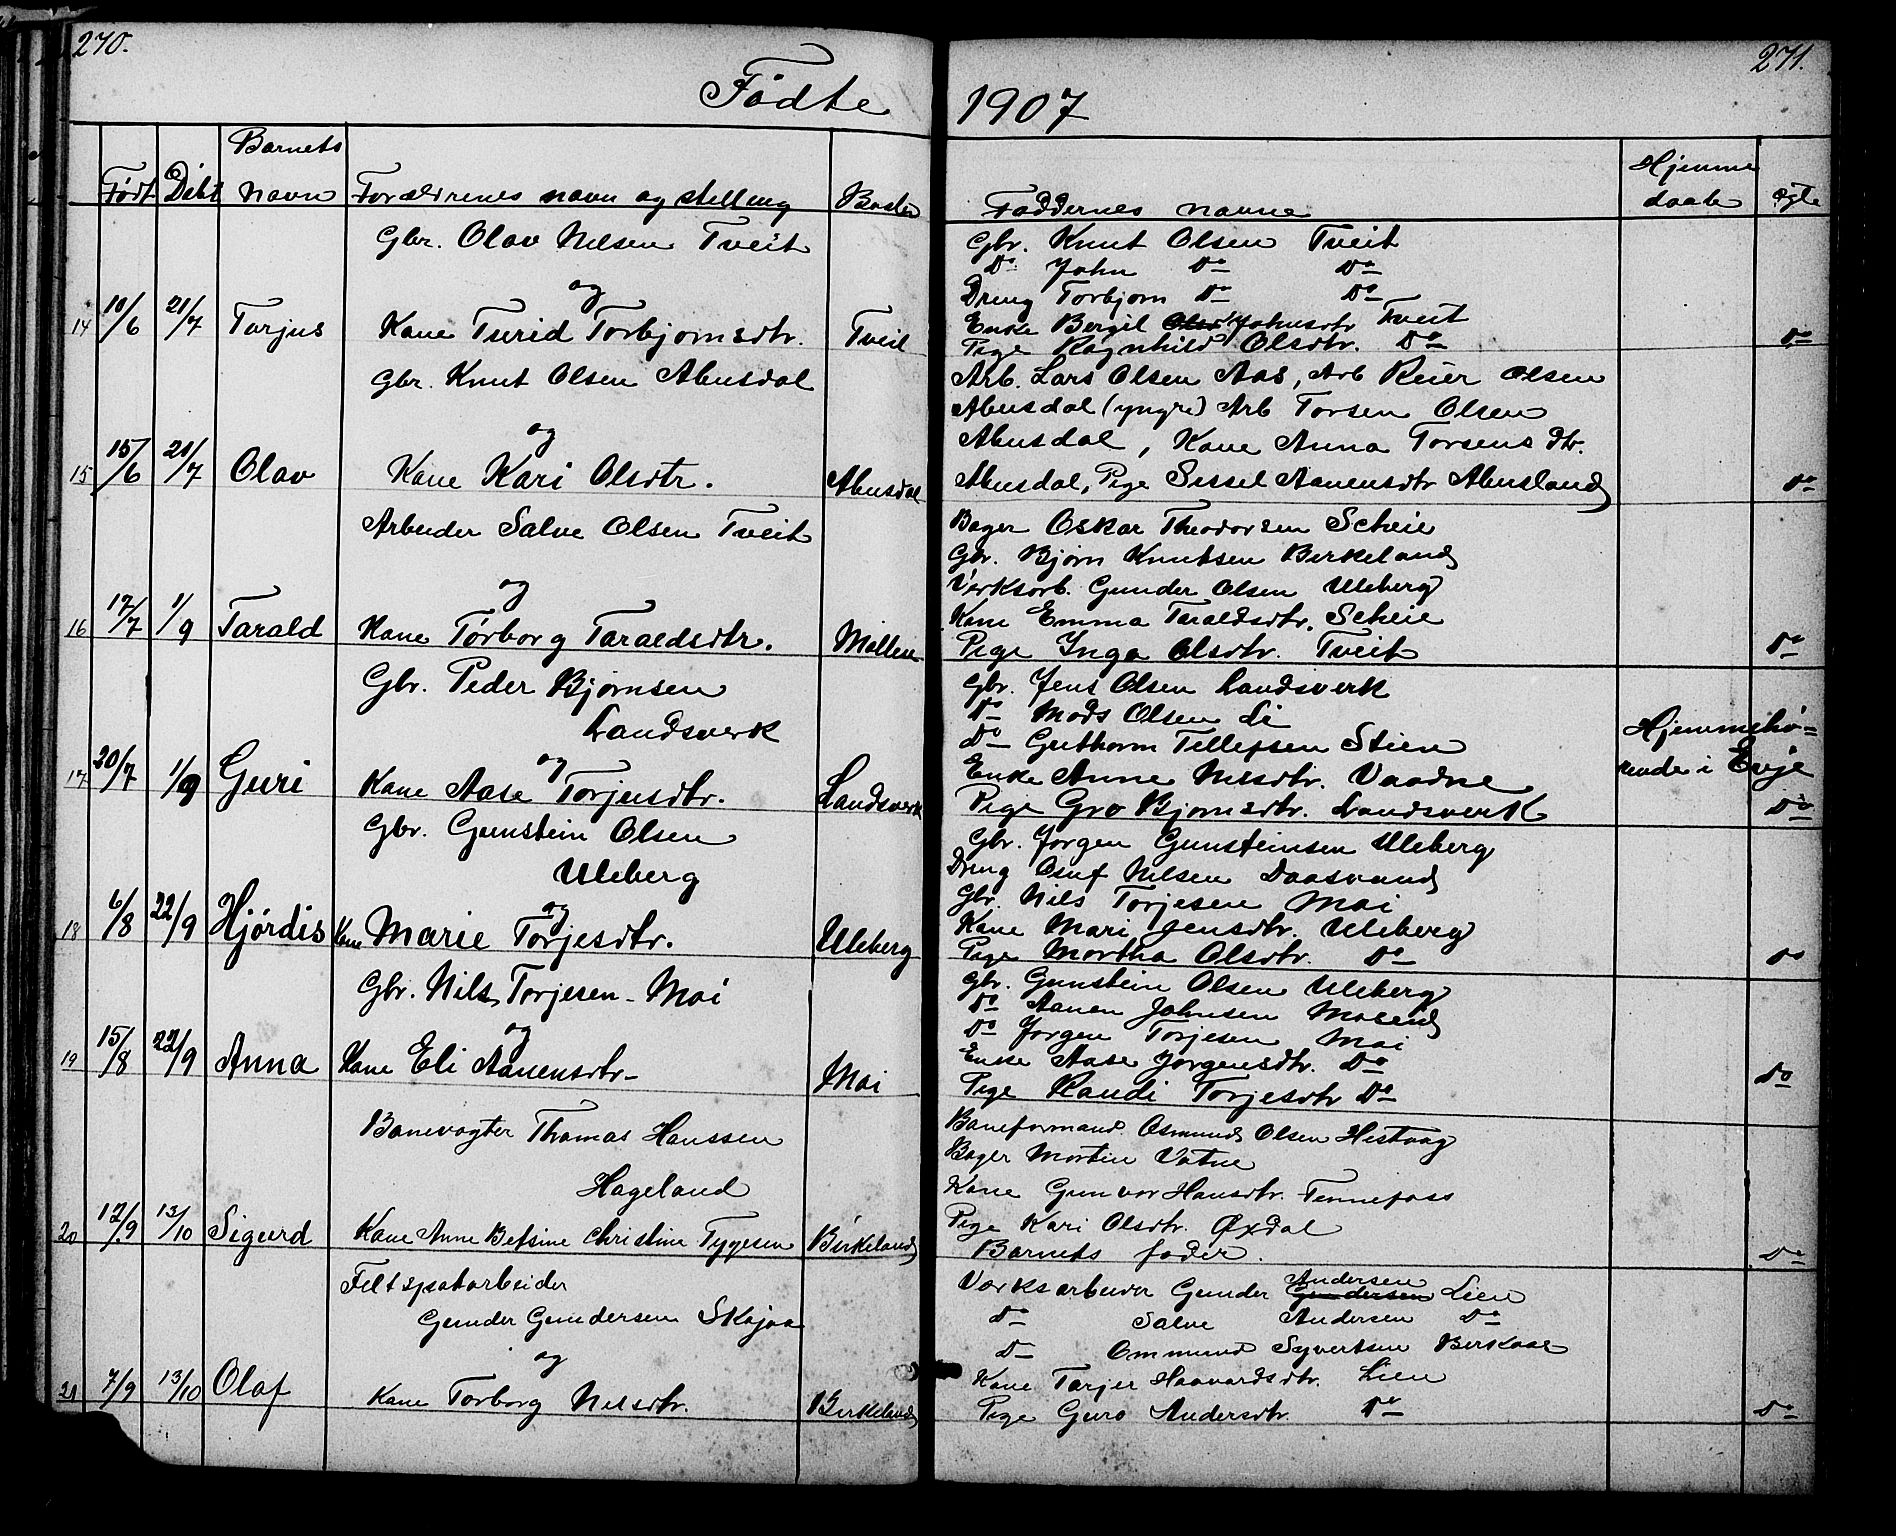 270.
Fødte
Født Døbt Barnets navn Forældrenes navn og stilling Bosted
Gbr. Olav Nilsen Tveit
og
14 10/6 21/7 Tarjus Kone Turid Torbjørnsdtr. Tveit
Gbr. Knut Olsen Abusdal
og
15 15/6 21/7 Olav Kone Kari Olsdtr. Abusdal
Arbeider Salve Olsen Tveit
og
16 17/7 1/9 Tarald Kone Torborg Taraldsdtr. Møllen
Gbr. Peder Bjørnsen
Landsverk
og
17 20/7 1/9 Guri Kone Aase Torjusdtr. Landsverk
Gbr. Gunstein Olsen
Uleberg
og
18 6/8 22/9 Hjørdis Kone Marie Torjesdtr. Uleberg
Gbr. Nils Torjesen Moi
og
19 15/8 22/9 Anna Kone Eli Aanensdtr. Moi
Banevogter Thomas Hanssen
Hageland
20 12/9 13/10 Sigurd Kone Anne Betsine Christine Tygesen Birkeland
Feltspatarbeider
Gunder Gundersen Skajaa
og
21 7/9 13/10 Olaf Kone Torborg Nilsdtr. Birkeland
271.
1907
Faddernes navne Hjemme daab ægte
Gbr. Knut Olsen Tveit
Do John Do Do
Dreng Torbjørn Do Do
Enke Bergit Olsd Johnsdtr Tveit
Pige Ragnhild Olsdtr. Do Do
Arb. Lars Olsen Aas, Arb Reier Olsen
Abusdal (yngre) Arb Torsen Olsen
Abusdal, Kone Anna Torsens dtr.
Abusdal, Pige Sissel Aanensdtr Abusland Do
Bager Oskar Theodorsen Scheie
Gbr. Bjørn Knutsen Birkeland
Verksarb. Gunder Olsen Uleberg
Kone Emma Taraldsdtr. Scheie
Pige Inga Olsdtr. Tveit Do
Gbr. Jens Olsen Landsverk
Do Mads Olsen Li
Do Guthorm Tellefsen Stien
Enke Anne Nilsdtr. Vaadne
Pige Gro Bjørnsdtr. Landsverk
Hjemmehø=
rende i Evje
Do
Gbr. Jørgen Gunsteinsen Uleberg
Dreng Osuf Nilsen Daasvand
Gbr. Nils Torjesen Moi
Kone Mari Jensdtr. Uleberg
Pige Martha Olsdtr. Do Do
Gbr. Gunstein Olsen Uleberg
Do Aanen Johnsen
Do Jørgen Torjesen Moi
Enke Aase Jørgensdtr. Do
Pige Randi Torjesdtr Do Do
Baneformand Osmund Olsen Hestvaag
Bager Morten Vatne
Kone Gunvor Hansdtr. Fennefoss
Pige Kari Olsdtr. Øxdal
Barnets fader. Do
Værksarbeider Gunder Gundersen Andersen Lien
Do Salve Andersen Do
Do Ommund Syvertsen Birkaas
Kone Tarjer Haavardsdtr. Lien
Pige Guro Andersdtr. Do Do